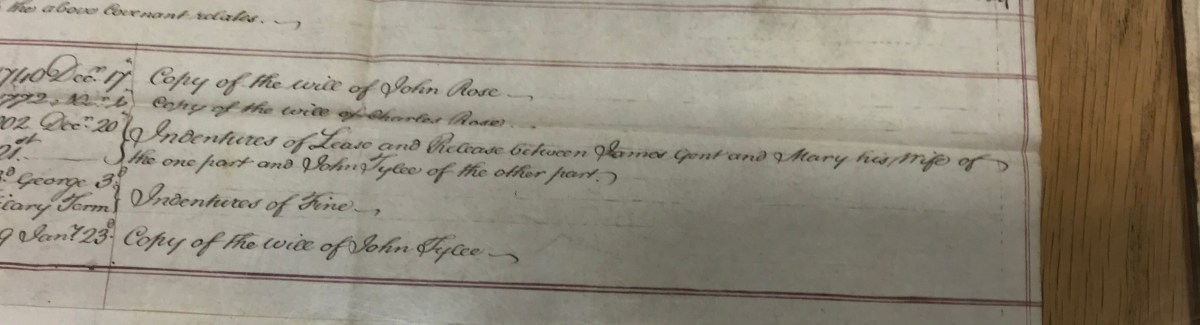 the above Covenant relates.
1740 Decr. 17 Copy of the will of John Rose
1772 Copy of the will of Charles Rose
02 Decr. 20th Indentures of Lease and Release between James Gent and Mary his Wife of
21st. the one part and John Tylee of the other part.
George 3d
Term Indentures of Fine
9 Jany. 23d. Copy of the will of John Tylee